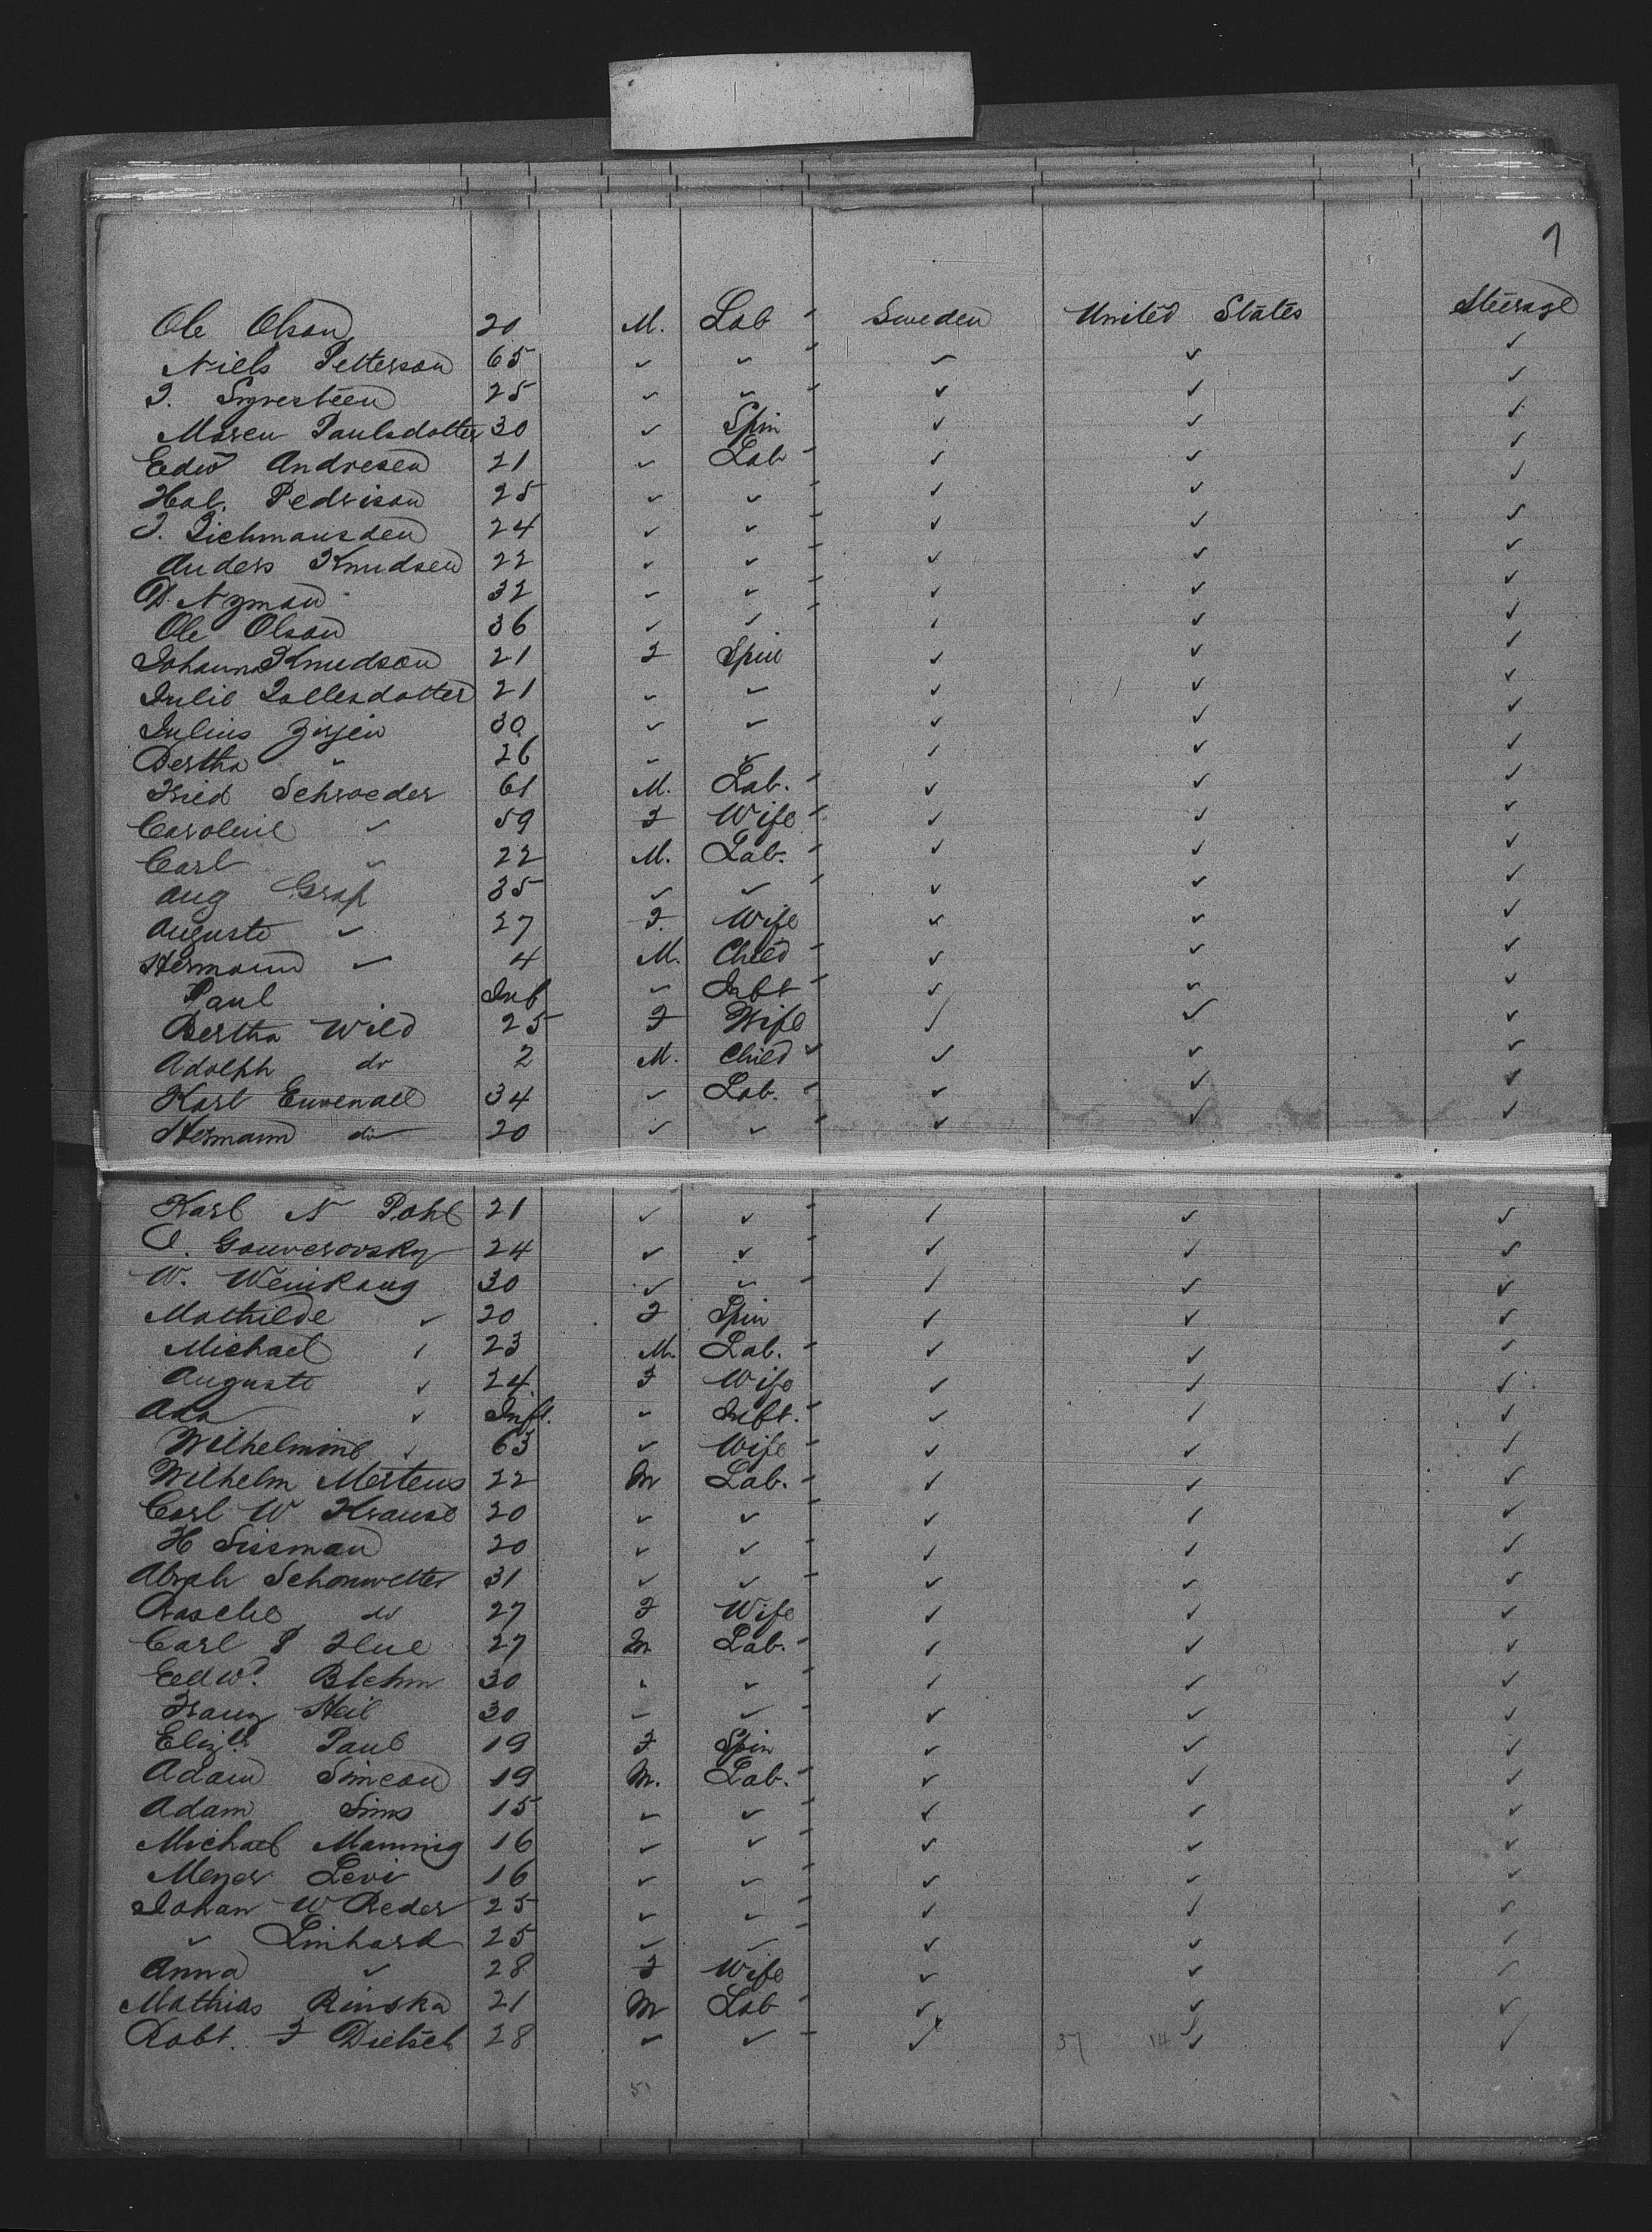 9
Ole Olson 20 M. Lab " Sweden United States Steerage
Niels Petterson 65 " " " " " "
J. Syvertsen 25 " " " " " "
Maren Paulsdotter 30 " Spin " " "
Edwd Andresen 21 " Lab " " " "
Hal. Pedrison 25 " " " " " "
J. 24 " " " " " "
Anders Knudsen 22 " " " " " "
D. Nyman 32 " " " " " "
Ole Olson 36 " " " " " "
Johanna Knudson 21 F Spin " " "
Julie 21 " " " " "
Julius 30 " " " " "
Bertha " 26 " " " " "
Fried Schroeder 61 M. Lab. " " " "
Caroline " 59 F Wife " " " "
Carl " 22 M. Lab. " " " "
Aug Graf 35 " " " " " "
Auguste " 27 F. Wife " " " "
Hermann " 4 M. Child " " " "
Paul Inf " Inft " " " "
Bertha Wild 25 F Wife " " " "
Adolph do 2 M. Child " " " "
Karl 34 " Lab. " " " "
Hermann do 20 " " " " " "
Karl N Pohl 21 " " " " " "
24 " " " " " "
W. 30 " " " " " "
Mathilde " 20 F Spin " " "
Michael " 23 M. Lab. " " " "
Auguste " 24. F Wife " " " "
Ada " Inft. " Inft. " " " "
Wilhelmine " 63 " Wife " " " "
Wilhelm Mertens 22 M Lab. " " " "
Carl W Krause 20 " " " " " "
H Sissman 20 " " " " " "
Abrah Schonwetter 31 " " " " " "
do 27 F Wife " " " "
Carl P 27 M. Lab. " " " "
Edwd. Blehm 30 " " " " " "
Franz Heil 30 " " " " " "
Elizth Paul 19 F Spin " " "
Adam Simeon 19 M. Lab. " " " "
Adam Sims 15 " " " " " "
Michael Mannig 16 " " " " " "
Meyer Levi 16 " " " " " "
Johan W Reder 25 " " " " " "
" Linhard 25 " " " " " "
Anna " 28 F Wife " " "
Mathias Rinska 21 M Lab " " " "
Robt. F Dietsch 28 " " " " " "
37 14
51